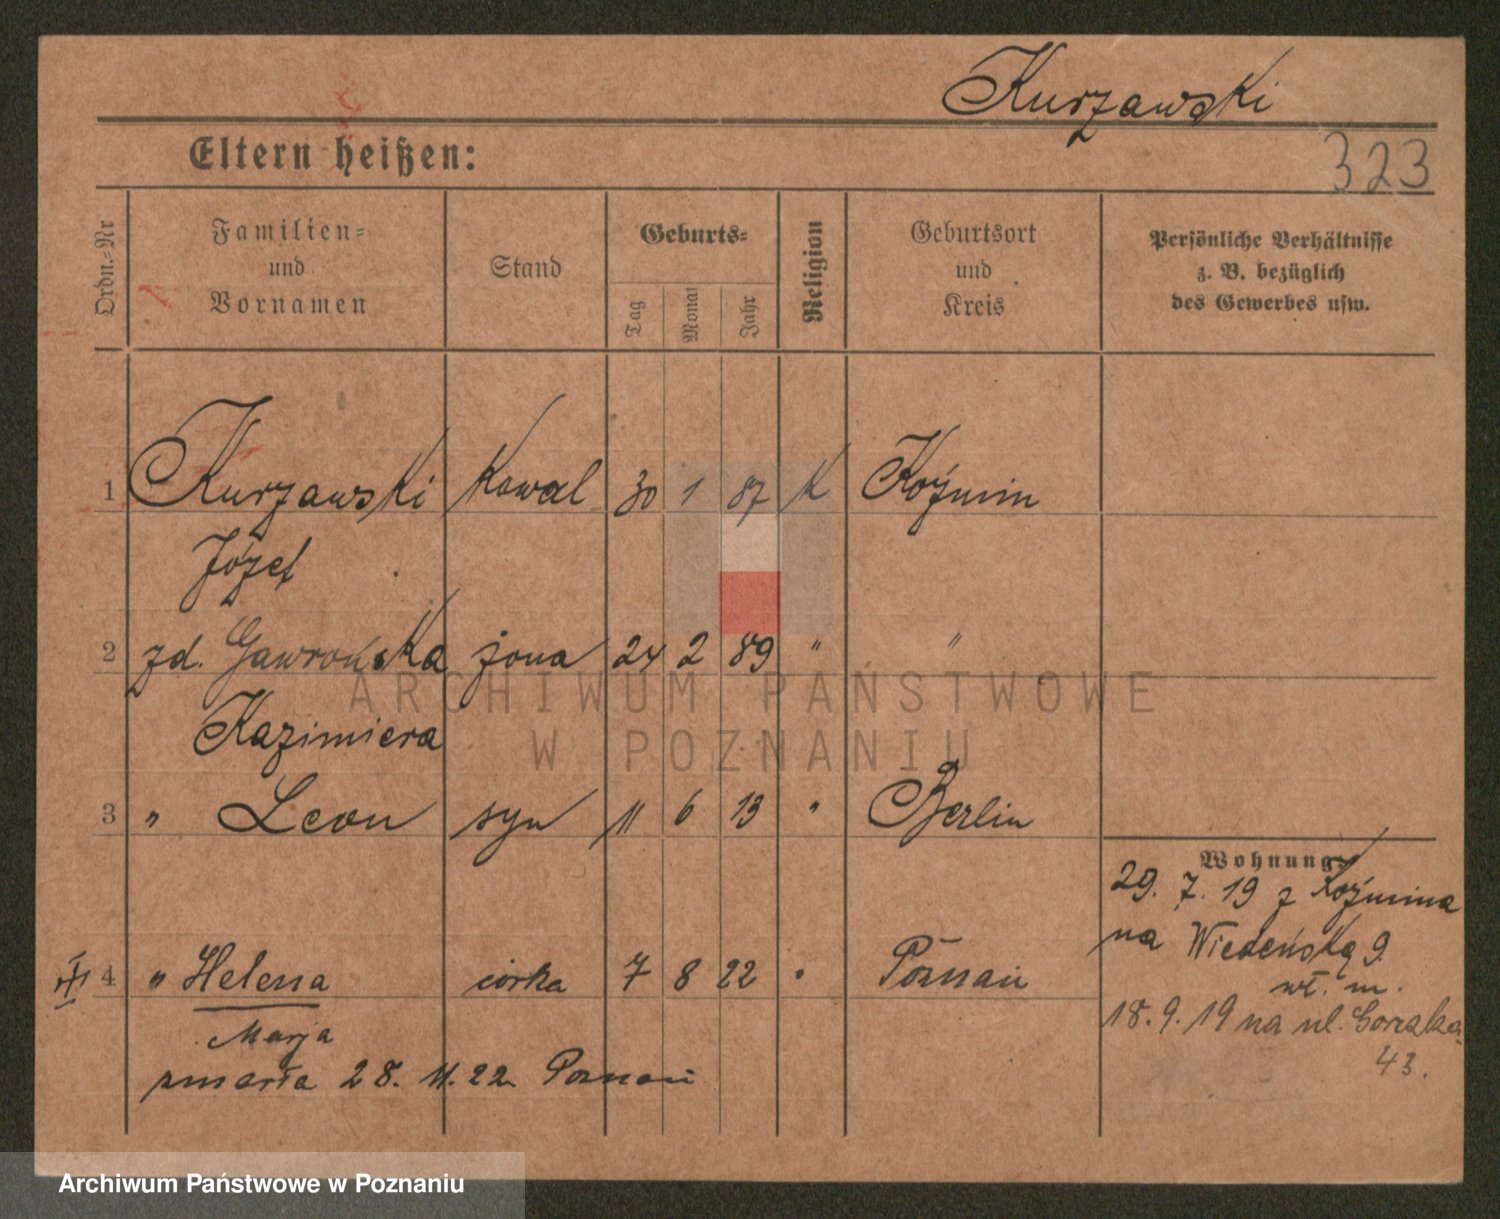 Kurzawski
323
Eltern heißen:
Ordn.-Nr
Familien- und Vornamen
Stand
Geburts-
Tag
Monat
Jahr
Religion
Geburtsort und Kreis
Persönliche Verhältnisse z. B. bezüglich des Gewerbes usw.
1 Kurzawski kowal 30 1 87 K Koźmin
Józef
2 zd. Gawrońska żona 24 2 89 " "
Kazimiera
3 " Leon syn 11 6 13 " Berlin
Wohnung:
29. 7. 19 z Koźmina
na Wiedeńską 9.
wł. m.
4 " Helena córka 7 8 22 " Poznań
18. 9. 19 na ul.
43.
Marja
zmarła 28. 11. 22 Poznań
ARCHIWUM PAŃSTWOWE
W POZNANIU
Archiwum Państwowe w Poznaniu